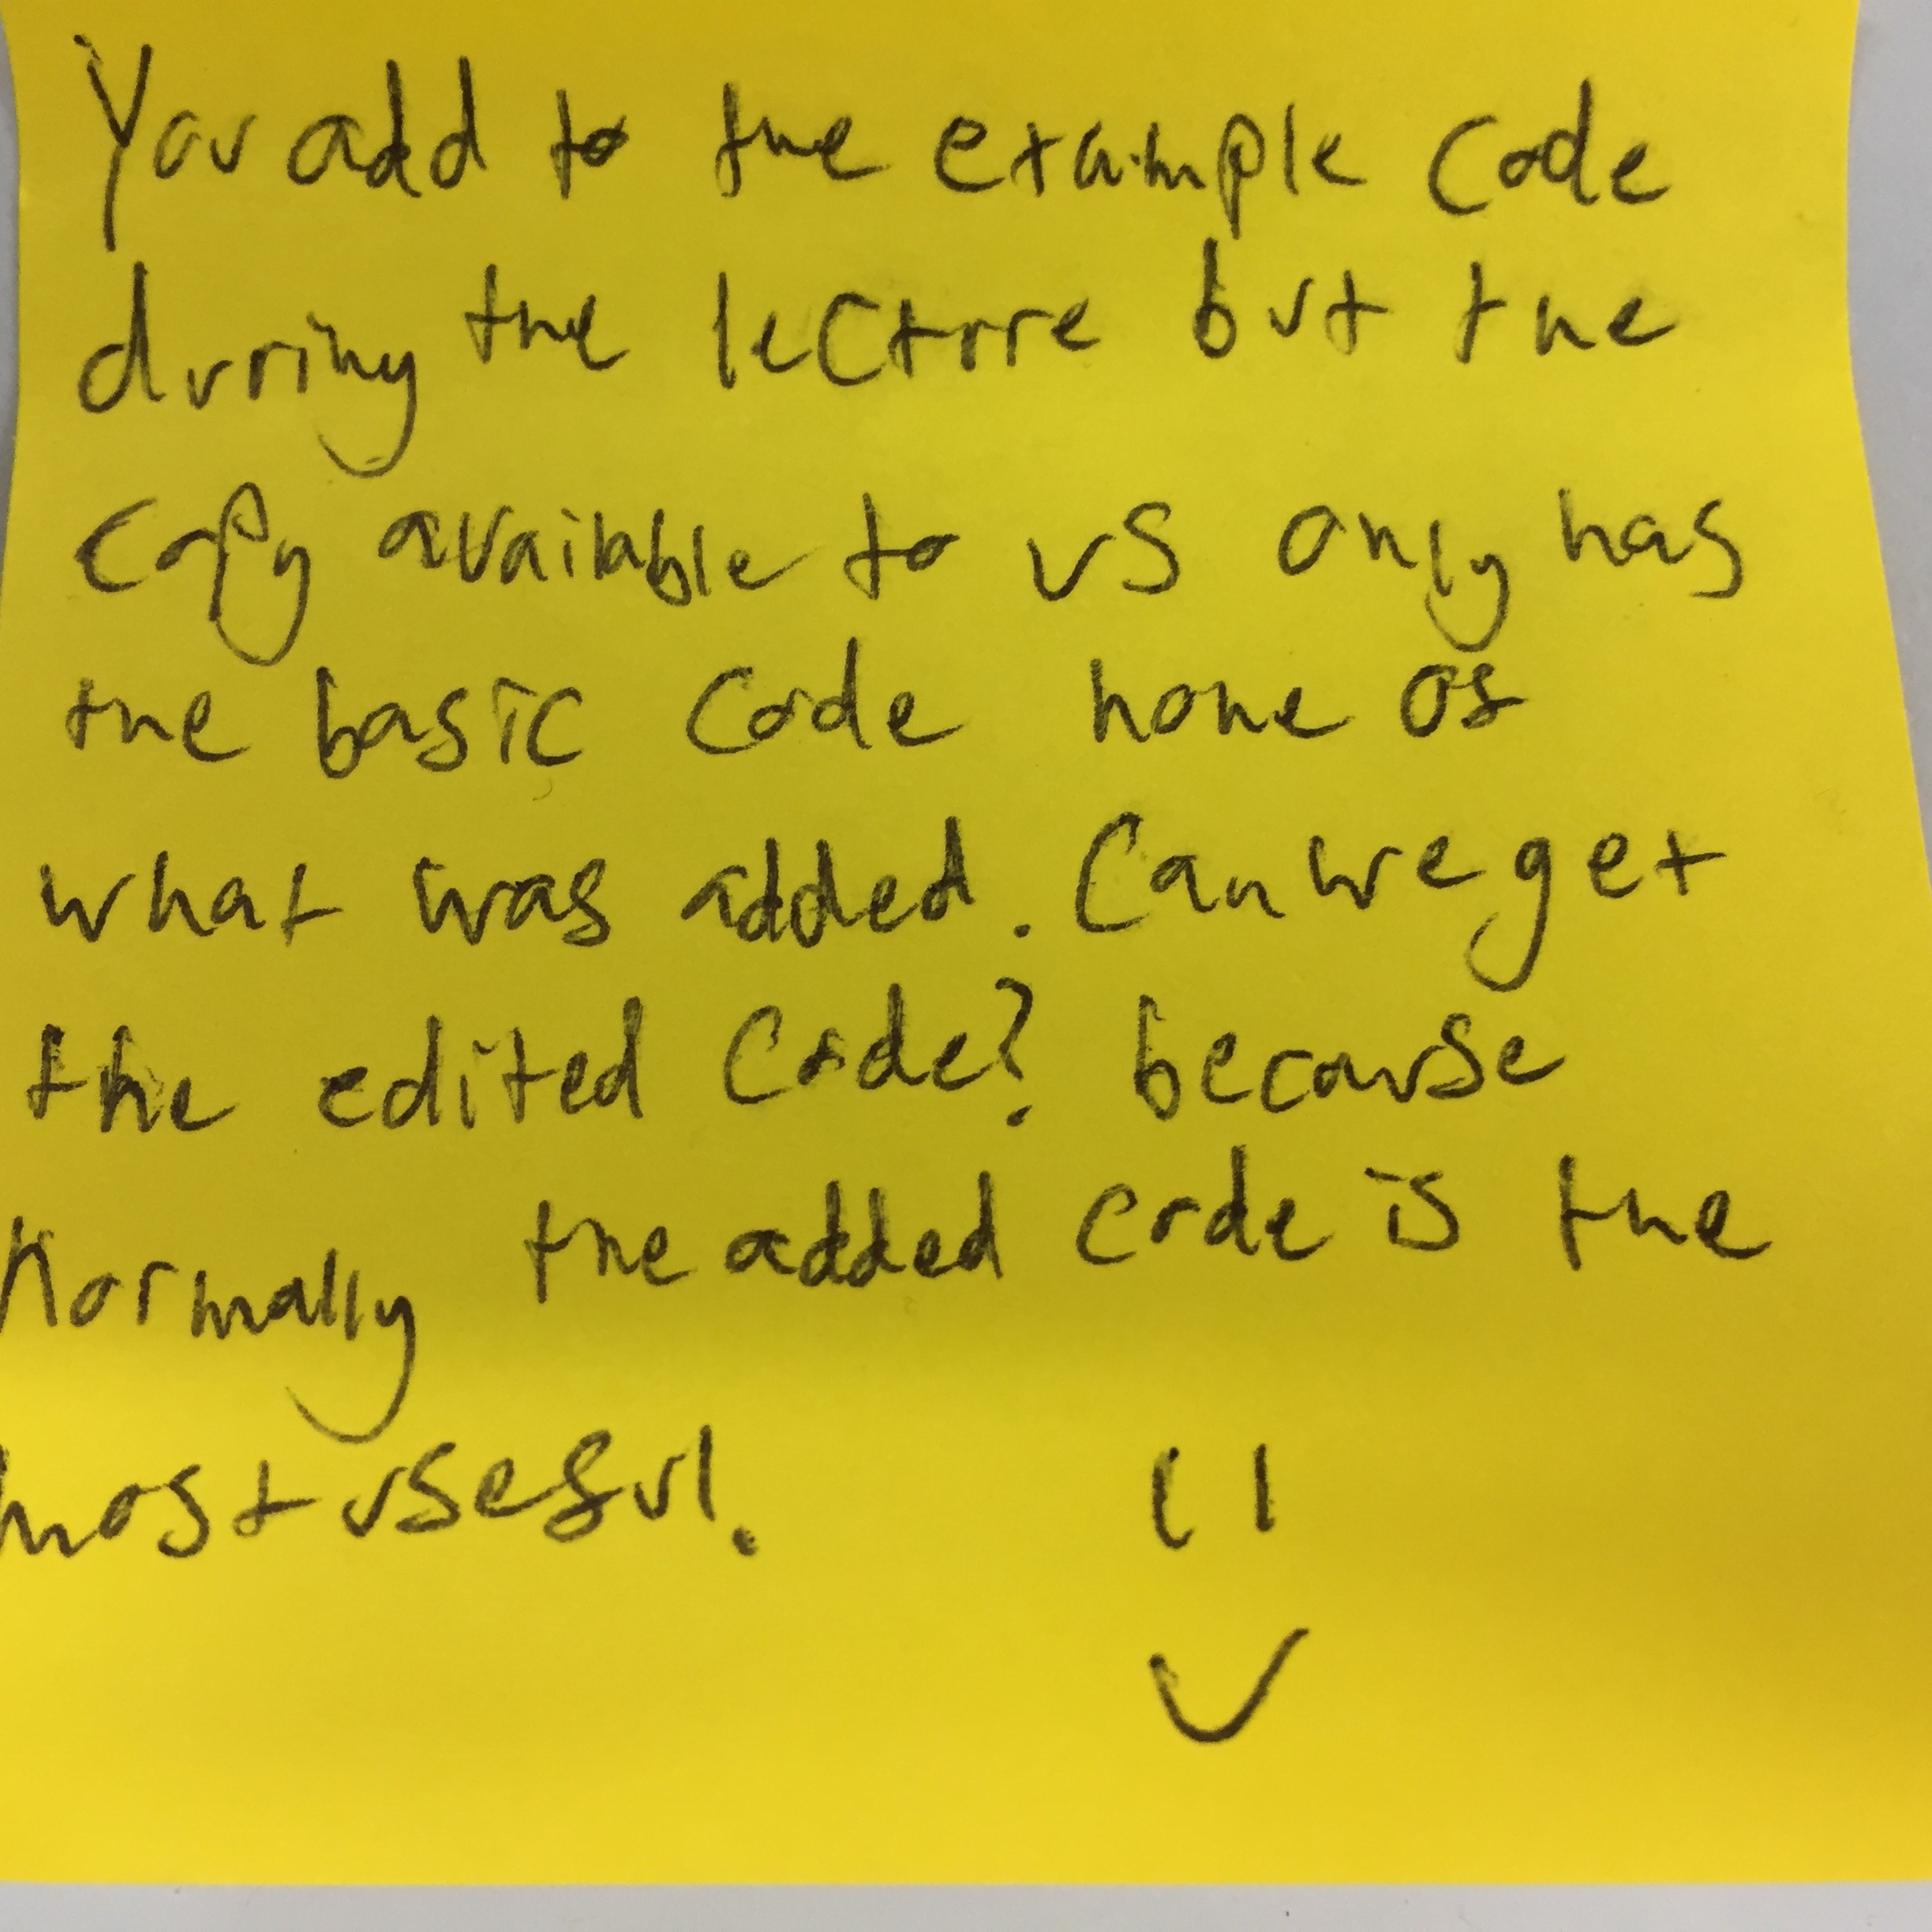 You add to the example code
during the lecture but the
copy available to us only has
the basic code none of
what was added. Can we get
the edited code? because
Normally the added code is the
most useful.